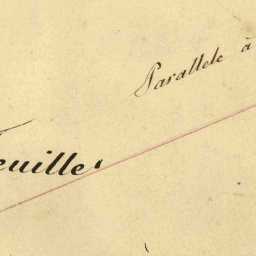 Parallele à
euille